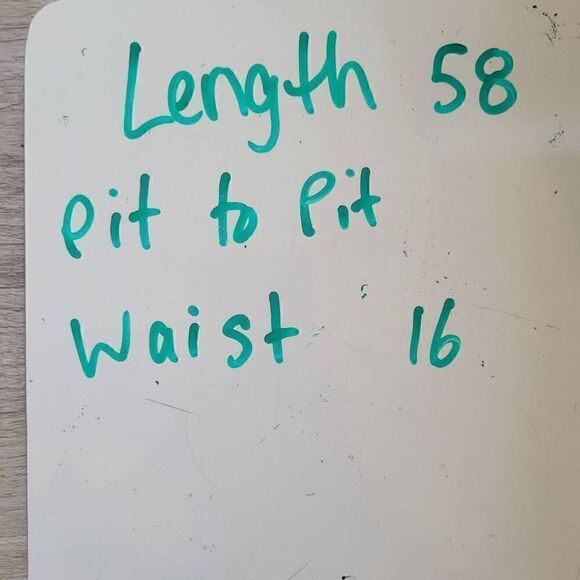 Length 58
Pit to Pit
Waist 16